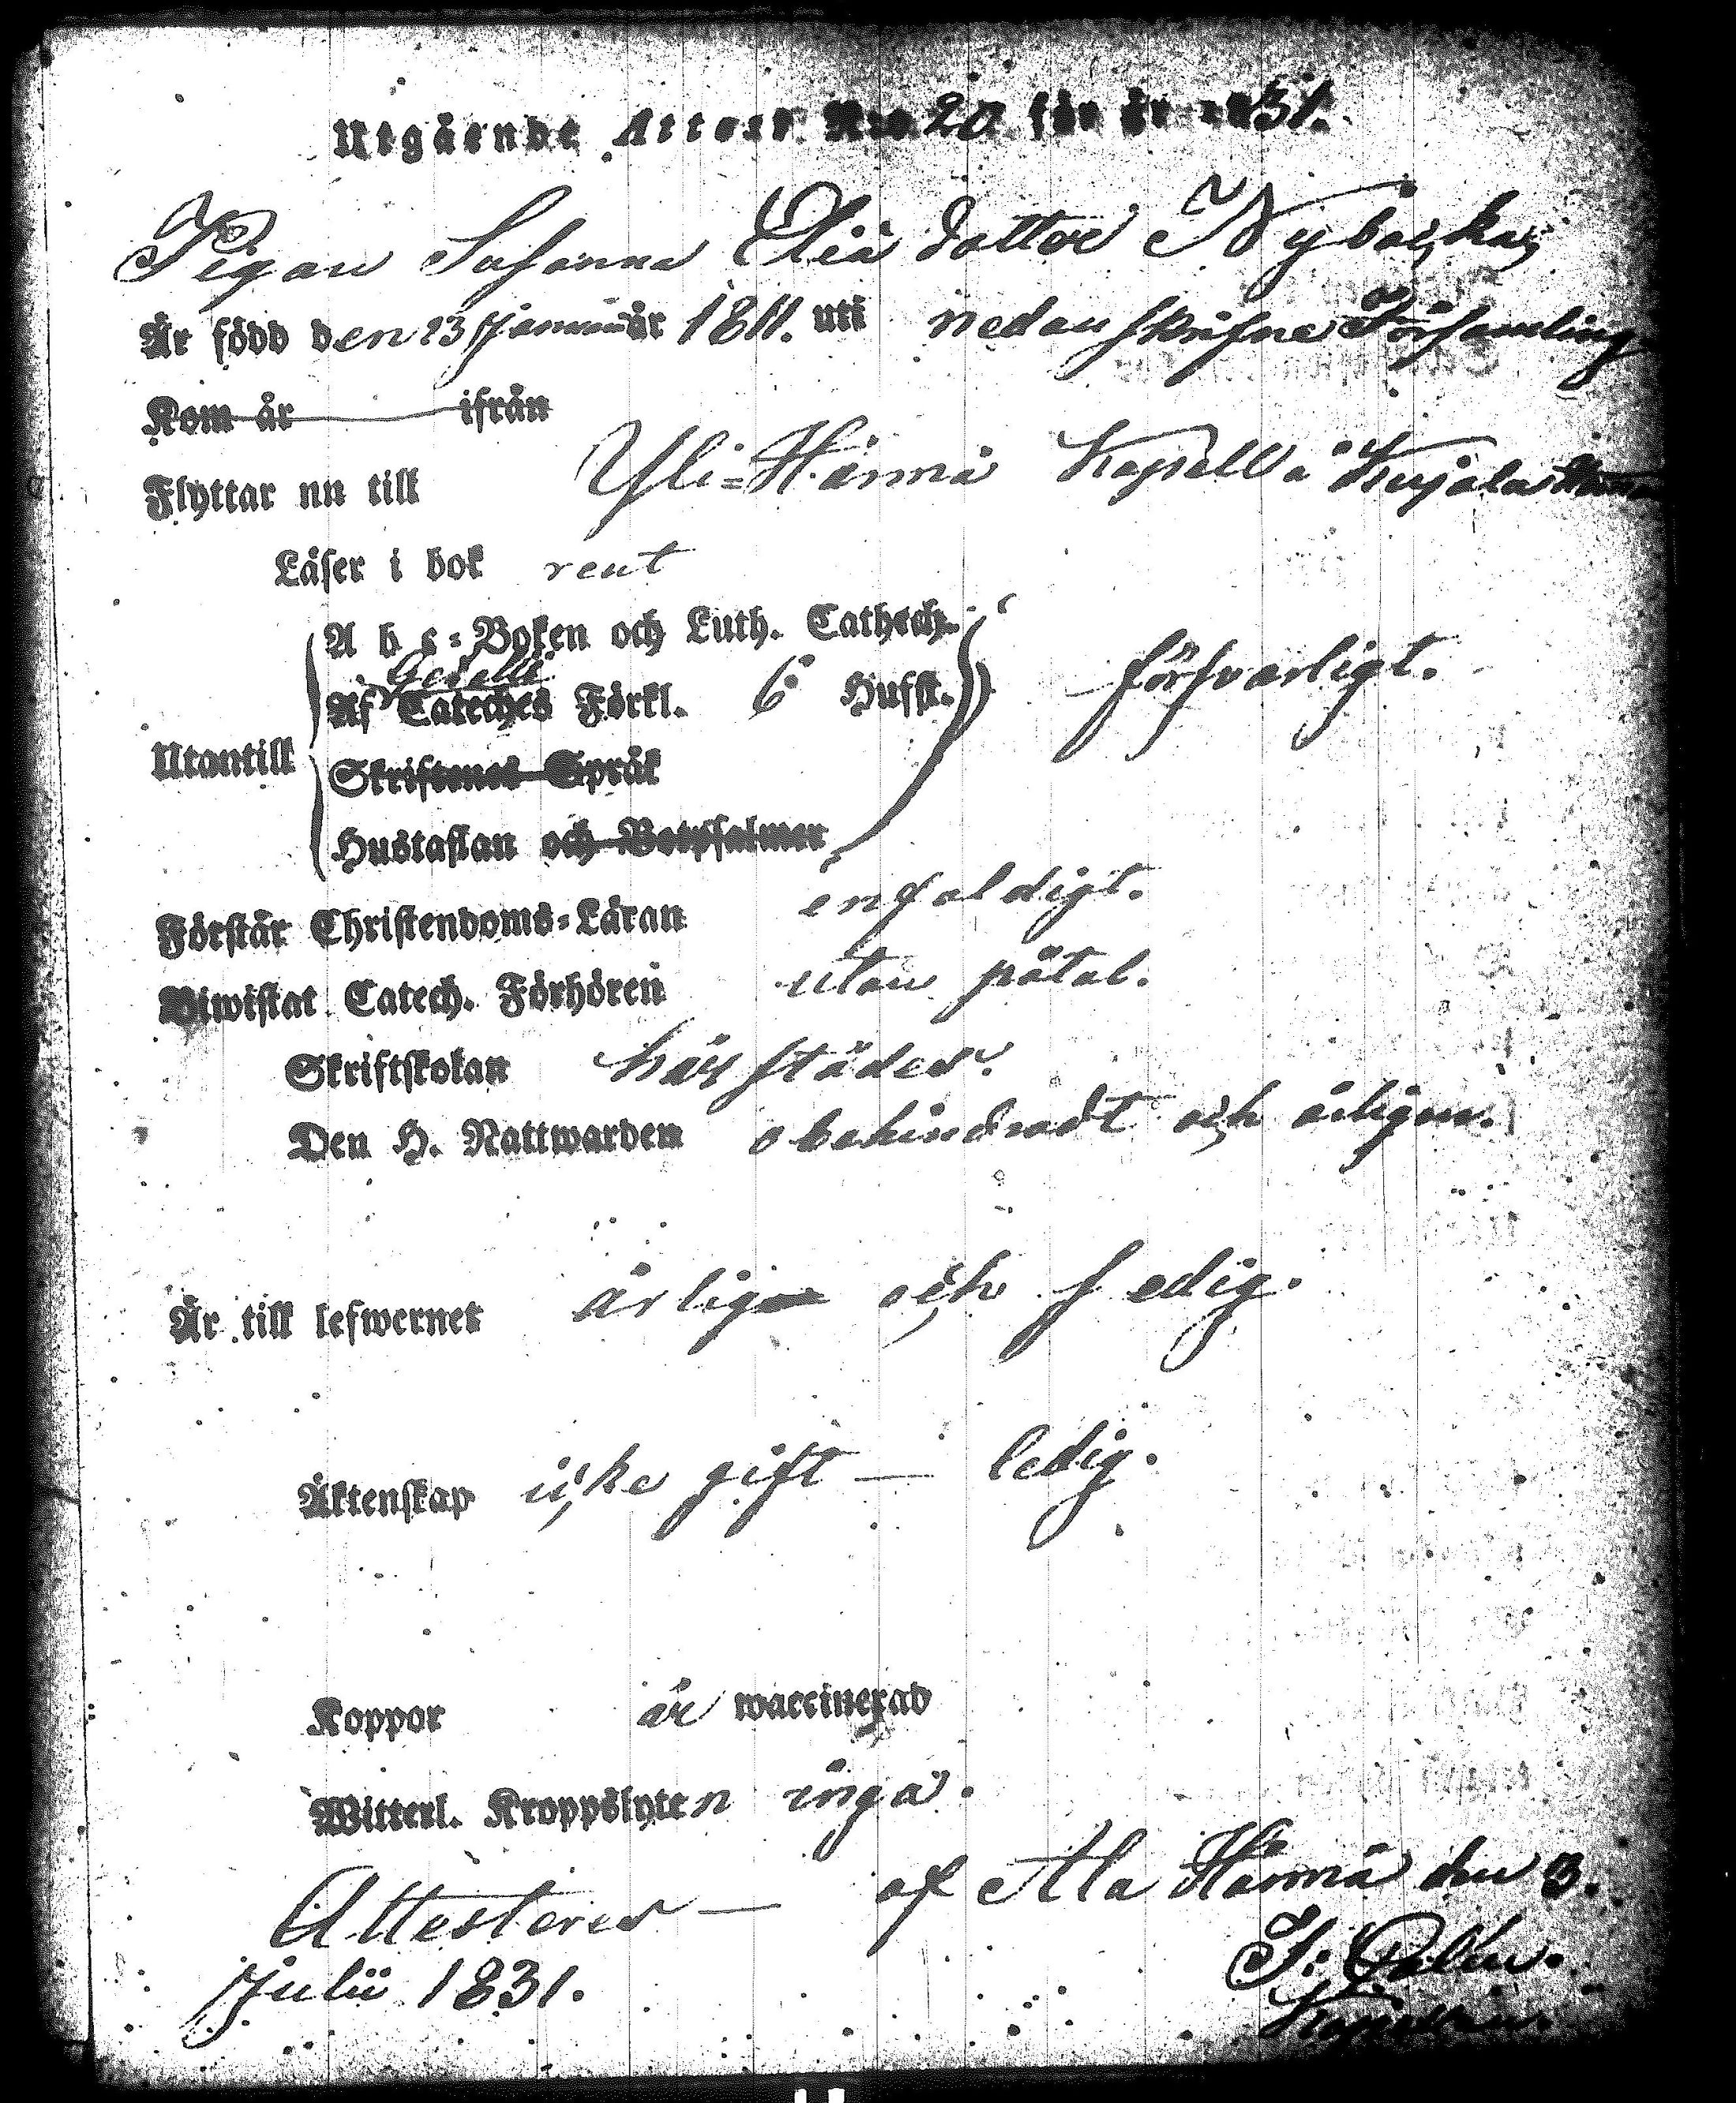 Utgående Attest N:o 20 för år 1831.
Pigan Susanna Eliä dotter Nybacka
Är född den 23 Januarii år 1811. uti nedanskrifne Församling
Kom år ifrån
Flyttar nu till Yli-Härmä Kapell å Kujala
Läser i bok rent
A b c-Boken och Luth. Cathech.
Gezelli
Af Cateches Förkl. 6 Husst. försvarligt.
Utantill
Skriftenes Språk
Hustaflan och Botpsalmer
Förstår Christendoms-Läran enfaldigt.
Biwistat Catech. Förhören utan påtal.
Skriftskolan härstädes.
Den H. Nattwarden obehindradt och årligen.
Är till lefwernet ärlig och sedig.
Äktenskap icke gift — ledig.
Koppor är waccinerad
Witterl. Kroppslyten inga.
Attesteres — af Ala Härmä den 3.
Julii 1831.
Kapellan.